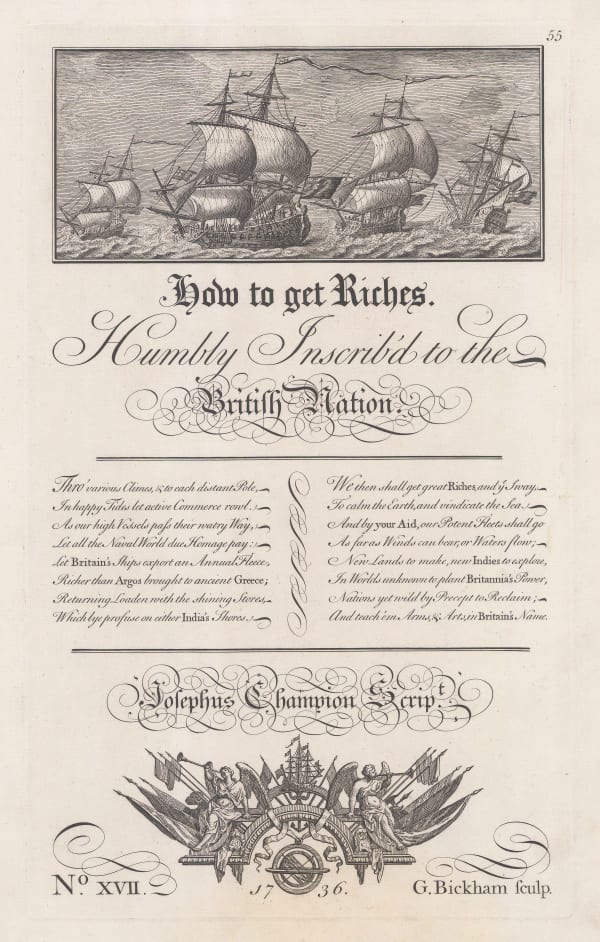 55
How to get Riches.
Humbly Inscrib'd to the
Britiſh Nation.
Thro' various Climes, & to each distant Pole,
In happy Tides let active Commerce rowl:
As our high Veſsels paſs their watry Way,
Let all the Naval World due Homage pay:
Let Britain's Ships export an Annual Fleece,
Richer than Argos brought to ancient Greece;
Returning Loaden with the shining Stores,
Which lye profuse on either India's Shores.
We then shall get great Riches, and yͤ Sway,
To calm the Earth, and vindicate the Sea.
And by your Aid, our Potent Fleets shall go
As far as Winds can bear, or Waters flow;
New Lands to make, new Indies to explore,
In Worlds unknown to plant Britannia's Power,
Nations yet wild by Precept to Reclaim;
And teach 'em Arms, & Arts, in Britain's Name.
Josephus Champion Scrip.ᵗ
Nº. XVII.
1736.
G. Bickham ſculp.